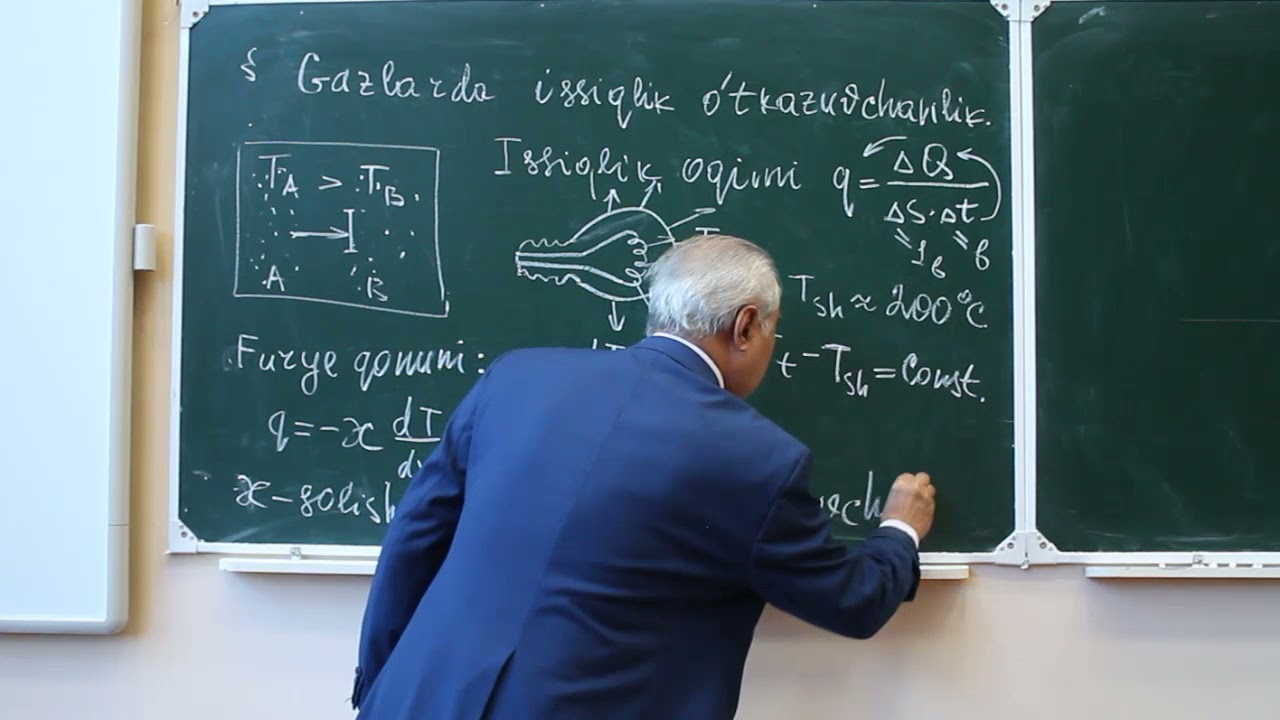 § Gazlarda issiqlik o'tkazuvchanlik.
T_A > T_B
A
B
Issiqlik oqimi q = ΔQ / ΔS·Δt
T_sh ≈ 200°C
Furye qonuni:
t - T_sh = Const.
q = -ϰ dT
ϰ - solish
vch